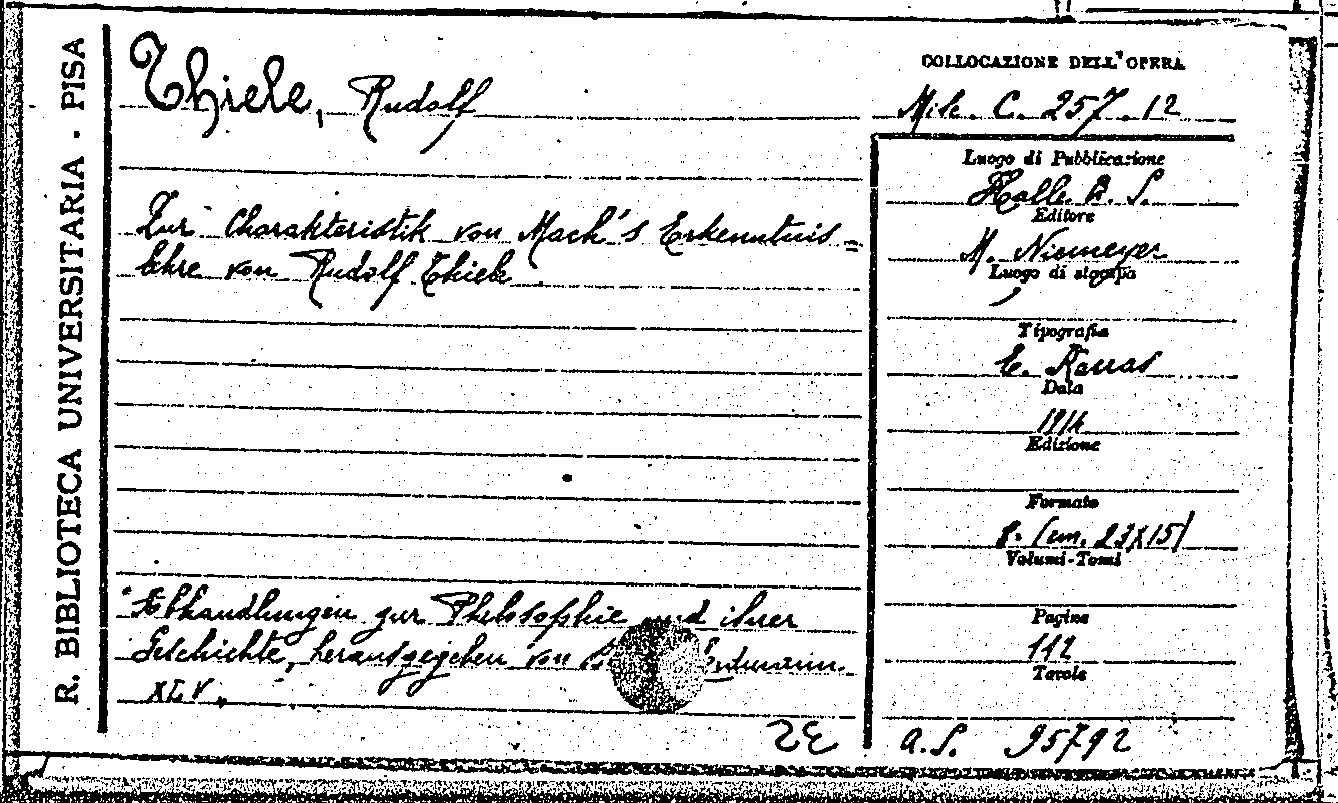 R. BIBLIOTECA UNIVERSITARIA - PISA
Thiele, Rudolf
Zur Charakteristik von Mach's Erkenntnis=
lehre von Rudolf Thiele
Abhandlungen zur Philosophie und ihrer
Geschichte, herausgegeben von Erdmann.
XLV.
COLLOCAZIONE DELL'OPERA
C. 257.12
Luogo di Pubblicazione
Halle a. S.
Editore
M. Niemeyer
Luogo di stampa
Tipografia
E. Karras
Data
1914
Edizione
Formato
8. (cm. 23X15)
Volumi-Tomi
Pagine
112
Tavole
a.S. 95792